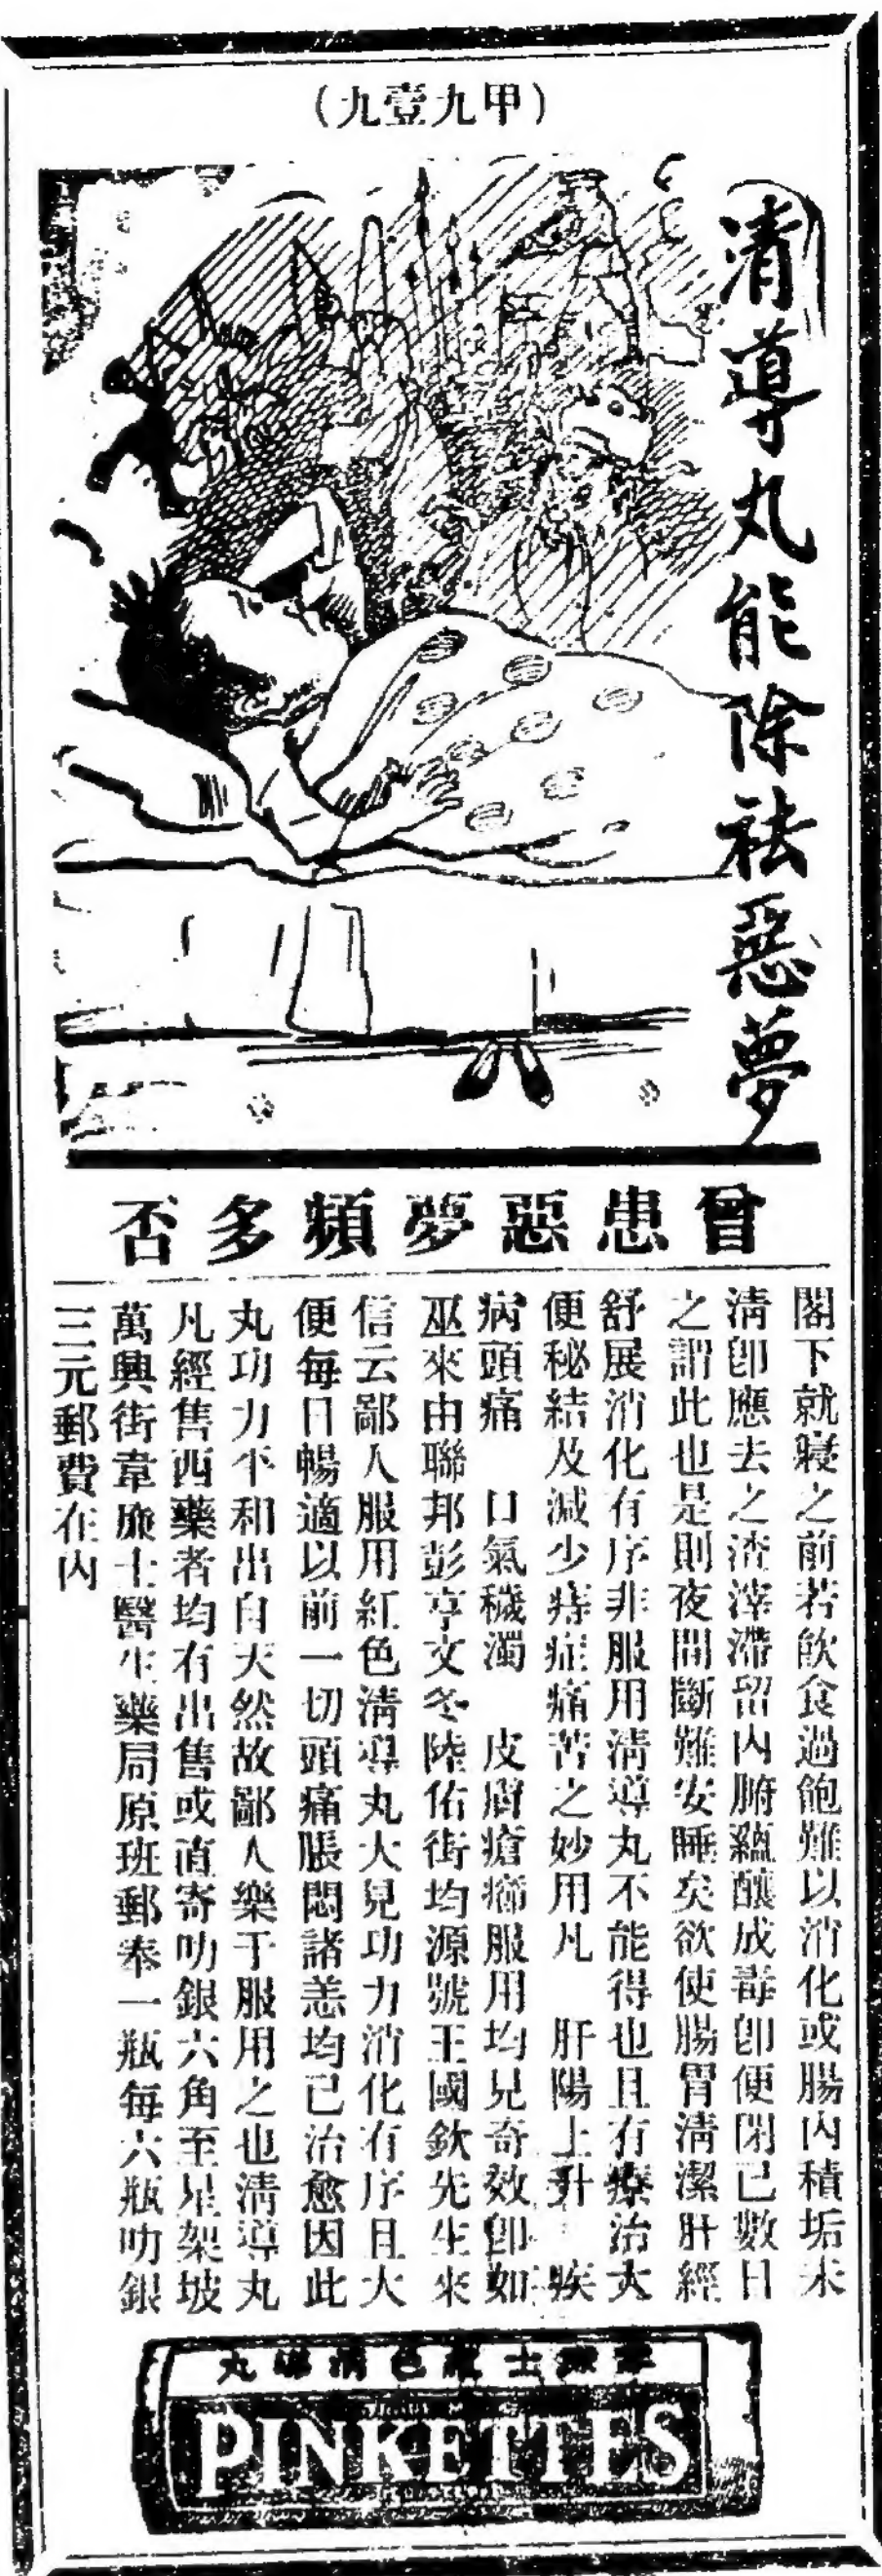 (甲九壹九)
清導丸能除祛惡夢
曾患惡夢頻多否
閣下就寢之前若飲食過飽難以消化或腸內積垢未
清卽應去之渣滓滯留內腑蘊釀成毒卽便閉已數日
之謂此也是則夜間斷難安睡矣欲使腸胃清潔肝經
舒展消化有序非服用清導丸不能得也且有療治大
便秘結及減少痔症痛苦之妙用凡 肝陽上升 疾
病頭痛 口氣穢濁 皮膚瘡癤服用均見奇效卽如
巫來由聯邦彭亨文冬陸佑街均源號王國欽先生來
信云鄙人服用紅色清導丸大見功力消化有序且大
便每日暢適以前一切頭痛脹悶諸恙均已治愈因此
丸功力平和出自天然故鄙人樂于服用之也清導丸
凡經售西藥者均有出售或直寄叻銀六角至星架坡
萬興街韋廉士醫生藥局原班郵奉一瓶每六瓶叻銀
三元郵費在內
韋廉士紅色清導丸
PINKETTES